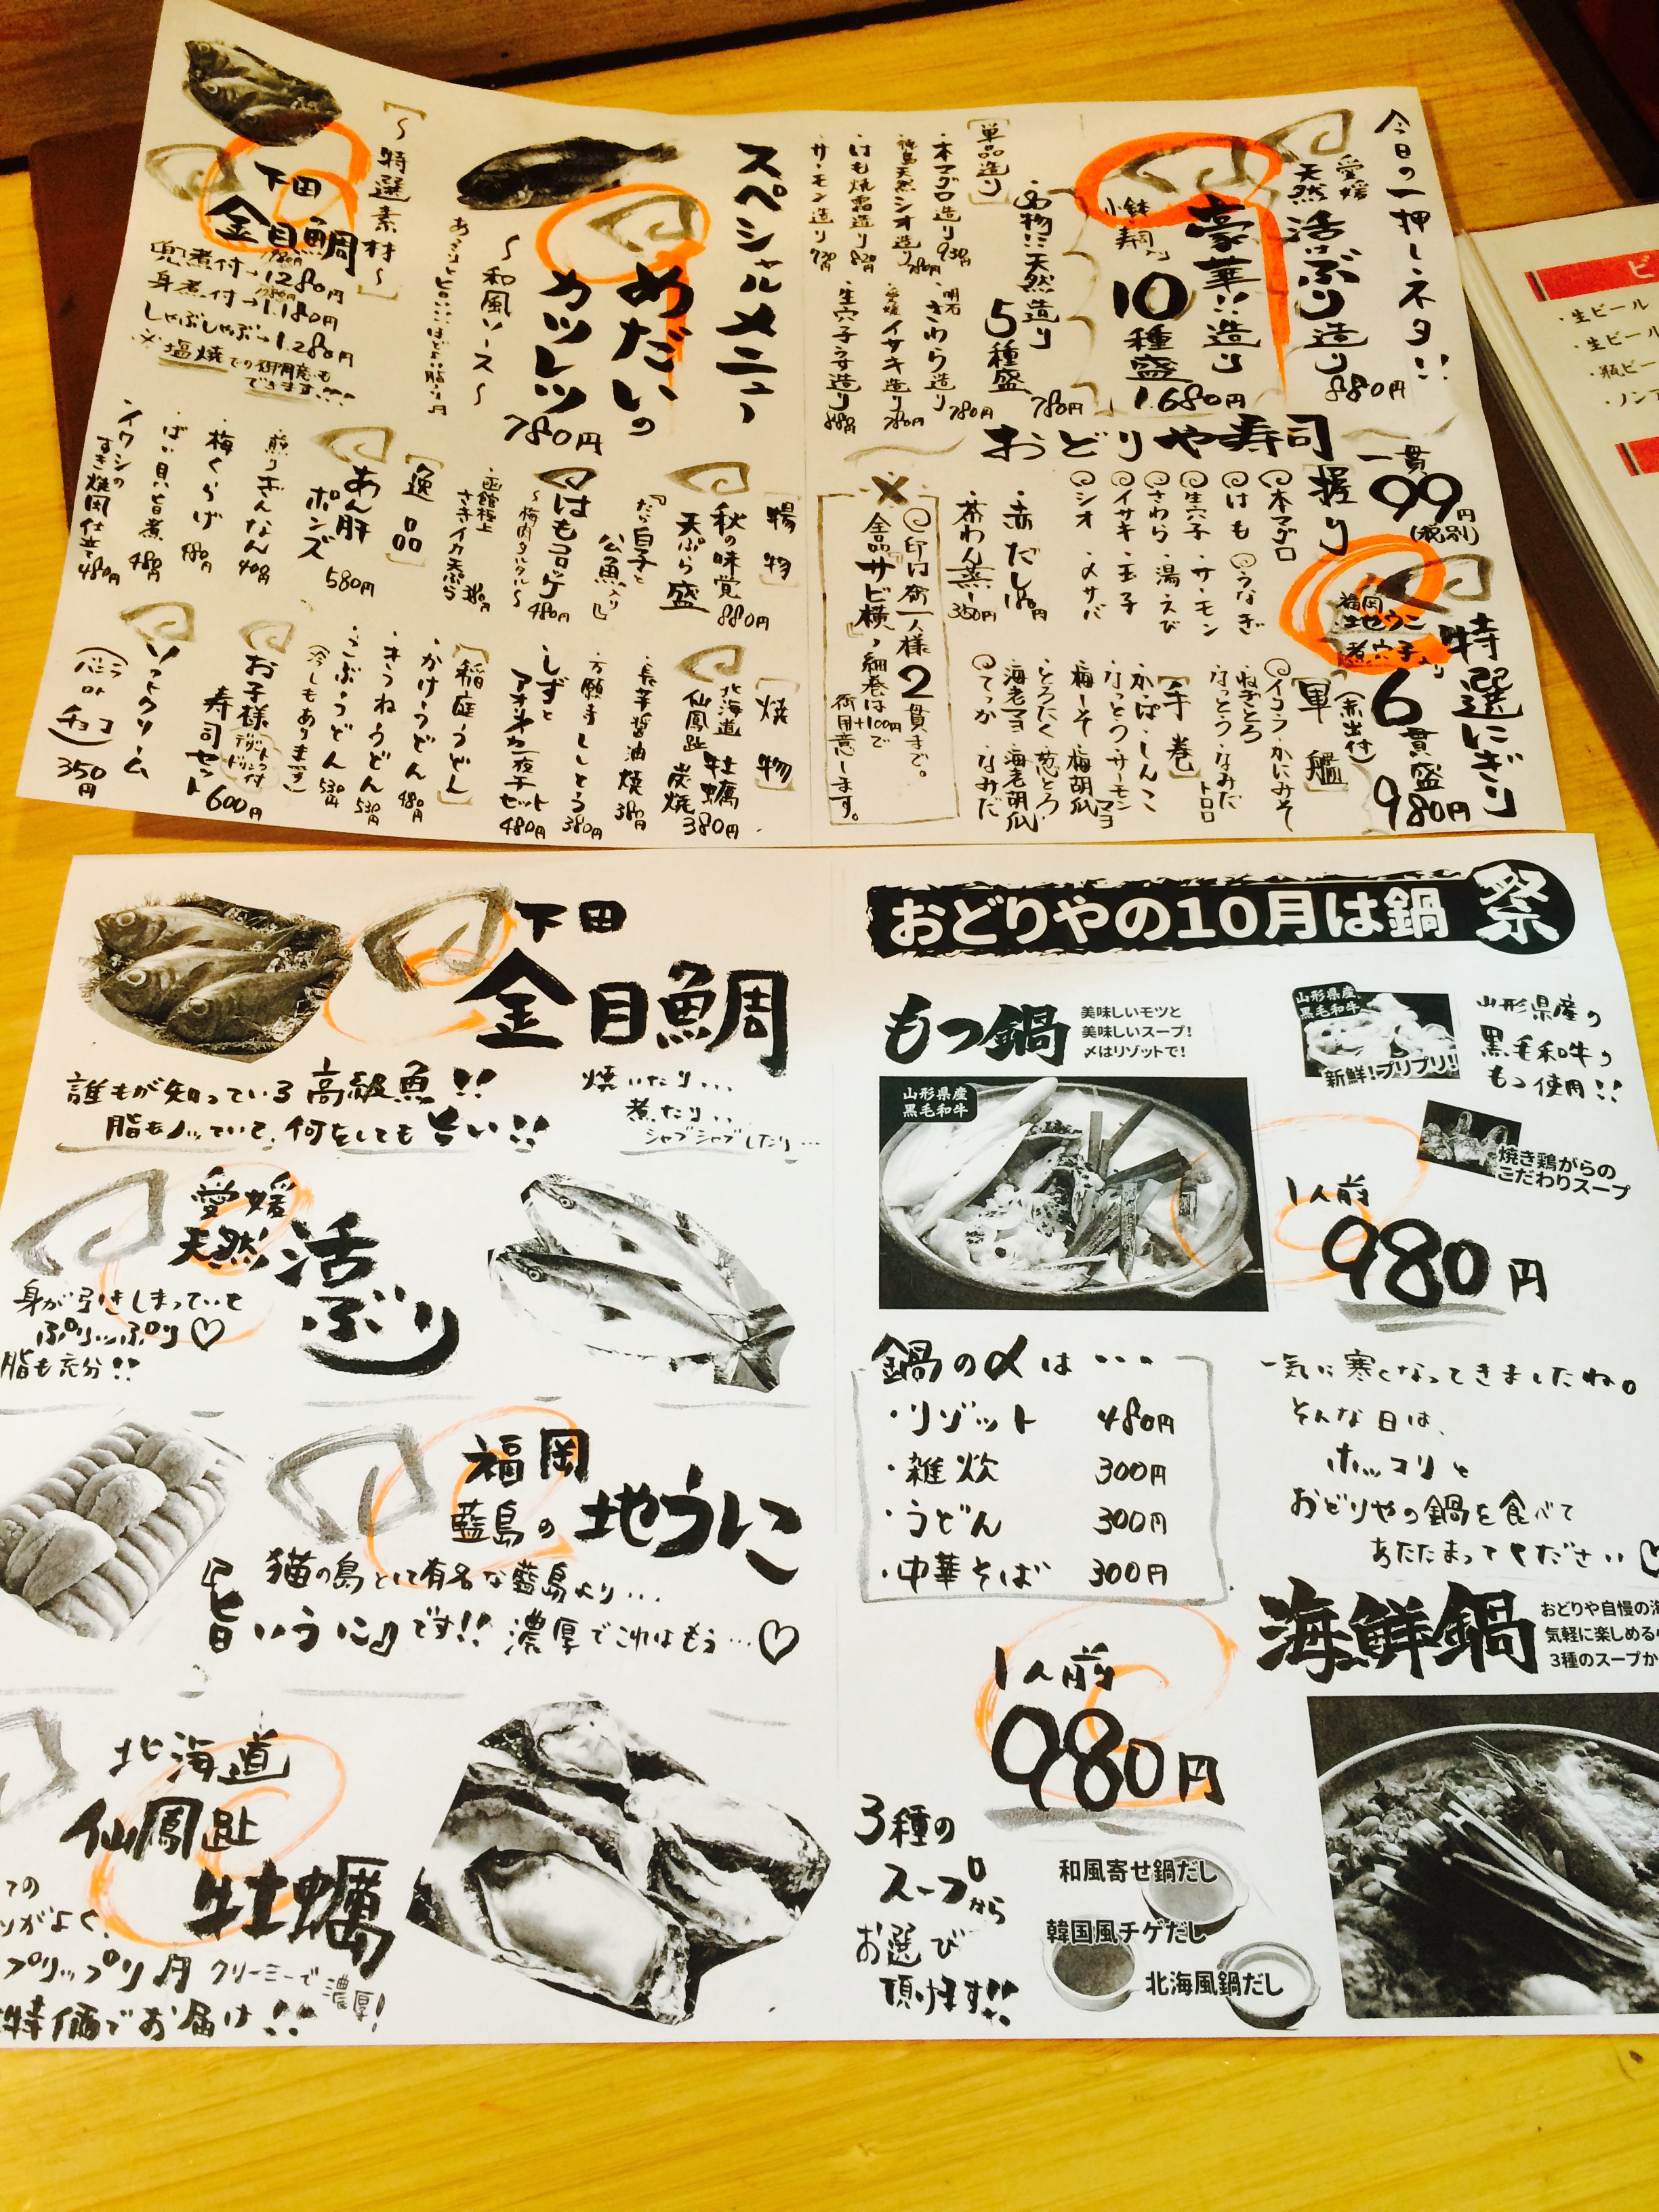 今日の一押しネタ!!
愛媛
天然
活〆ぶり造り
880円
豪華!!造り
小鉢
寿司入り
10
種盛
1.680円
名物!!天然造り
5種盛
780円
[単品造り]
・本マグロ造り 930円
・はも焼霜造り
・サーモン造り
・明石さわら造り 780円
・愛媛イサキ造り
・生穴子うす造り
おどりや寿司
一貫
99円
(税別)
握り
本マグロ
はも うなぎ
生穴子 ・サーモン
さわら ・湯えび
イサキ ・玉子
シオ ・〆サバ
・赤だし
・茶わん蒸し 350円
特選にぎり
福岡
地うに
煮穴子入り
6貫盛
980円
軍艦
イクラ・かにみそ
・ねぎとろ
・なっとう ・なみだ
トロロ
[手巻]
・かっぱ・しんこ
・なっとう ・サーモンマヨ
・梅しそ ・梅胡瓜
・とろたく ・葱とろ
・海老マヨ ・海老胡瓜
てっか ・なみだ
印は御一人様2貫まで。
全品『サビ横』
細巻は+100円で
御用意します。
スペシャルメニュー
めだいの
カツレツ
780円
~和風ソース~
[~特選素材~]
下田
金目鯛
兜煮付→1280円
身煮付→1.180円
しゃぶしゃぶ→1.280円
※塩焼での御用意も
できます!!!
[揚物]
・秋の味覚
天ぷら盛
880円
『たら白子と
公魚入り』
はもコロッケ
~梅肉タルタル~
480円
・函館極上
さきイカ天ぷら
380円
[逸品]
あん肝
ポンズ
580円
・煎りぎんなん
・梅くらげ
・ばい貝旨煮 480円
・イワシの
すき焼風仕立て 480円
[焼物]
北海道
仙鳳趾 牡蠣
炭焼
380円
・長芋醤油焼 380円
・万願寺ししとう 380円
・しずと
アオリイカ一夜干
セット
480円
[稲庭うどん]
・かけうどん 480円
・きつねうどん 530円
・こぶうどん 530円
(冷しもあります)
お子様
寿司セット
600円
ソフトクリーム
(バニラ
or
チョコ)
350円
下田
金目鯛
誰もが知っている高級魚!!
脂ものっていて、何をしても旨い!!
焼いたり...
煮たり...
シャブシャブしたり...
愛媛
天然
活〆ぶり
身が引きしまっていて
ぷりっぷり♡
脂も充分!!
福岡
藍島の
地うに
猫の島として有名な藍島より...
『旨いうに』です!! 濃厚でこれはもう...♡
北海道
仙鳳趾
牡蠣
プリップリ
クリーミーで濃厚!
特価でお届け!!
おどりやの10月は鍋祭
もつ鍋
美味しいモツと
美味しいスープ!
〆はリゾットで!
山形県産
黒毛和牛
山形県産
黒毛和牛
新鮮!プリプリ!
山形県産の
黒毛和牛の
もつ使用!!
焼き鶏がらの
こだわりスープ
1人前
980円
鍋の〆は...
・リゾット 480円
・雑炊 300円
・うどん 300円
・中華そば 300円
一気に寒くなってきましたね。
そんな日は、
ホッコリと
おどりやの鍋を食べて
あたたまってください♡
海鮮鍋
おどりや自慢の海
気軽に楽しめる
3種のスープか
1人前
980円
3種の
スープから
お選び
頂けます!!
和風寄せ鍋だし
韓国風チゲだし
北海風鍋だし
・生ビール
・生ビール
・瓶ビー
・ノンア